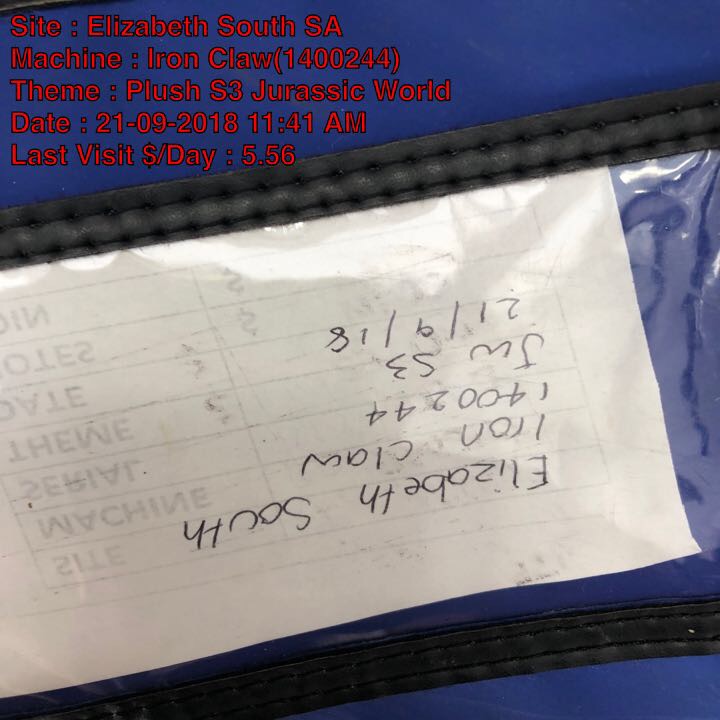 Site : Elizabeth South SA
Machine : Iron Claw(1400244)
Theme : Plush S3 Jurassic World
Date : 21-09-2018 11:41 AM
Last Visit $/Day : 5.56
Elizabeth South
Iron Claw
1400244
JW S3
21/9/18
SITE
MACHINE
SERIAL
THEME
DATE
NOTES
COIN